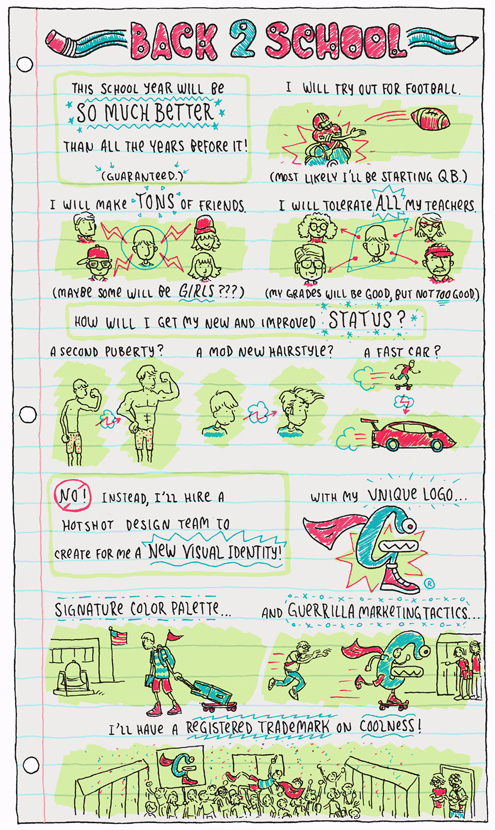 BACK 2 SCHOOL
THIS SCHOOL YEAR WILL BE
SO MUCH BETTER
THAN ALL THE YEARS BEFORE IT!
(GUARANTEED.)
I WILL TRY OUT FOR FOOTBALL.
(MOST LIKELY I'LL BE STARTING Q.B.)
I WILL MAKE TONS OF FRIENDS.
(MAYBE SOME WILL BE GIRLS???)
I WILL TOLERATE ALL MY TEACHERS.
(MY GRADES WILL BE GOOD, BUT NOT TOO GOOD)
HOW WILL I GET MY NEW AND IMPROVED STATUS?
A SECOND PUBERTY?
A MOD NEW HAIRSTYLE?
A FAST CAR?
NO! INSTEAD, I'LL HIRE A
HOTSHOT DESIGN TEAM TO
CREATE FOR ME A NEW VISUAL IDENTITY!
WITH MY UNIQUE LOGO...
®
SIGNATURE COLOR PALETTE...
AND GUERRILLA MARKETING TACTICS...
I'LL HAVE A REGISTERED TRADEMARK ON COOLNESS!